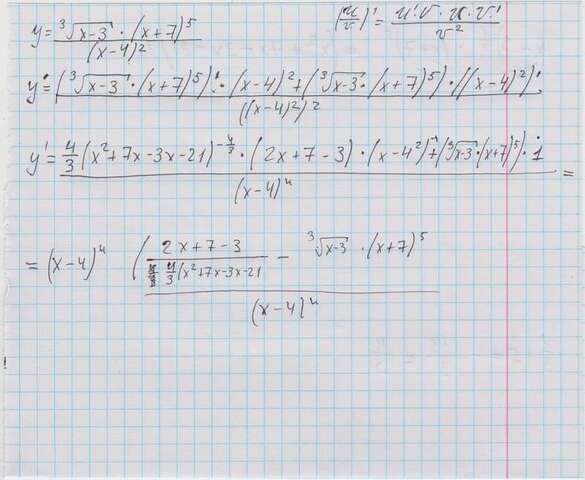 y = ∛(x-3) · (x+7)^5 / (x-4)^2
(u/v)' = u'·v · u·v' / v^2
y' = (∛(x-3) · (x+7)^5)' · (x-4)^2 + (∛(x-3) · (x+7)^5) · ((x-4)^2)' / ((x-4)^2)^2
y' = 4/3 (x^2+7x-3x-21)^(-4/3) · (2x+7-3) · (x-4^2) + (∛(x-3) · (x+7)^5) · 1 / (x-4)^4 =
= (x-4)^4 ( 2x+7-3 / 4/3 (x^2+7x-3x-21 - ∛(x-3) · (x+7)^5 / (x-4)^4